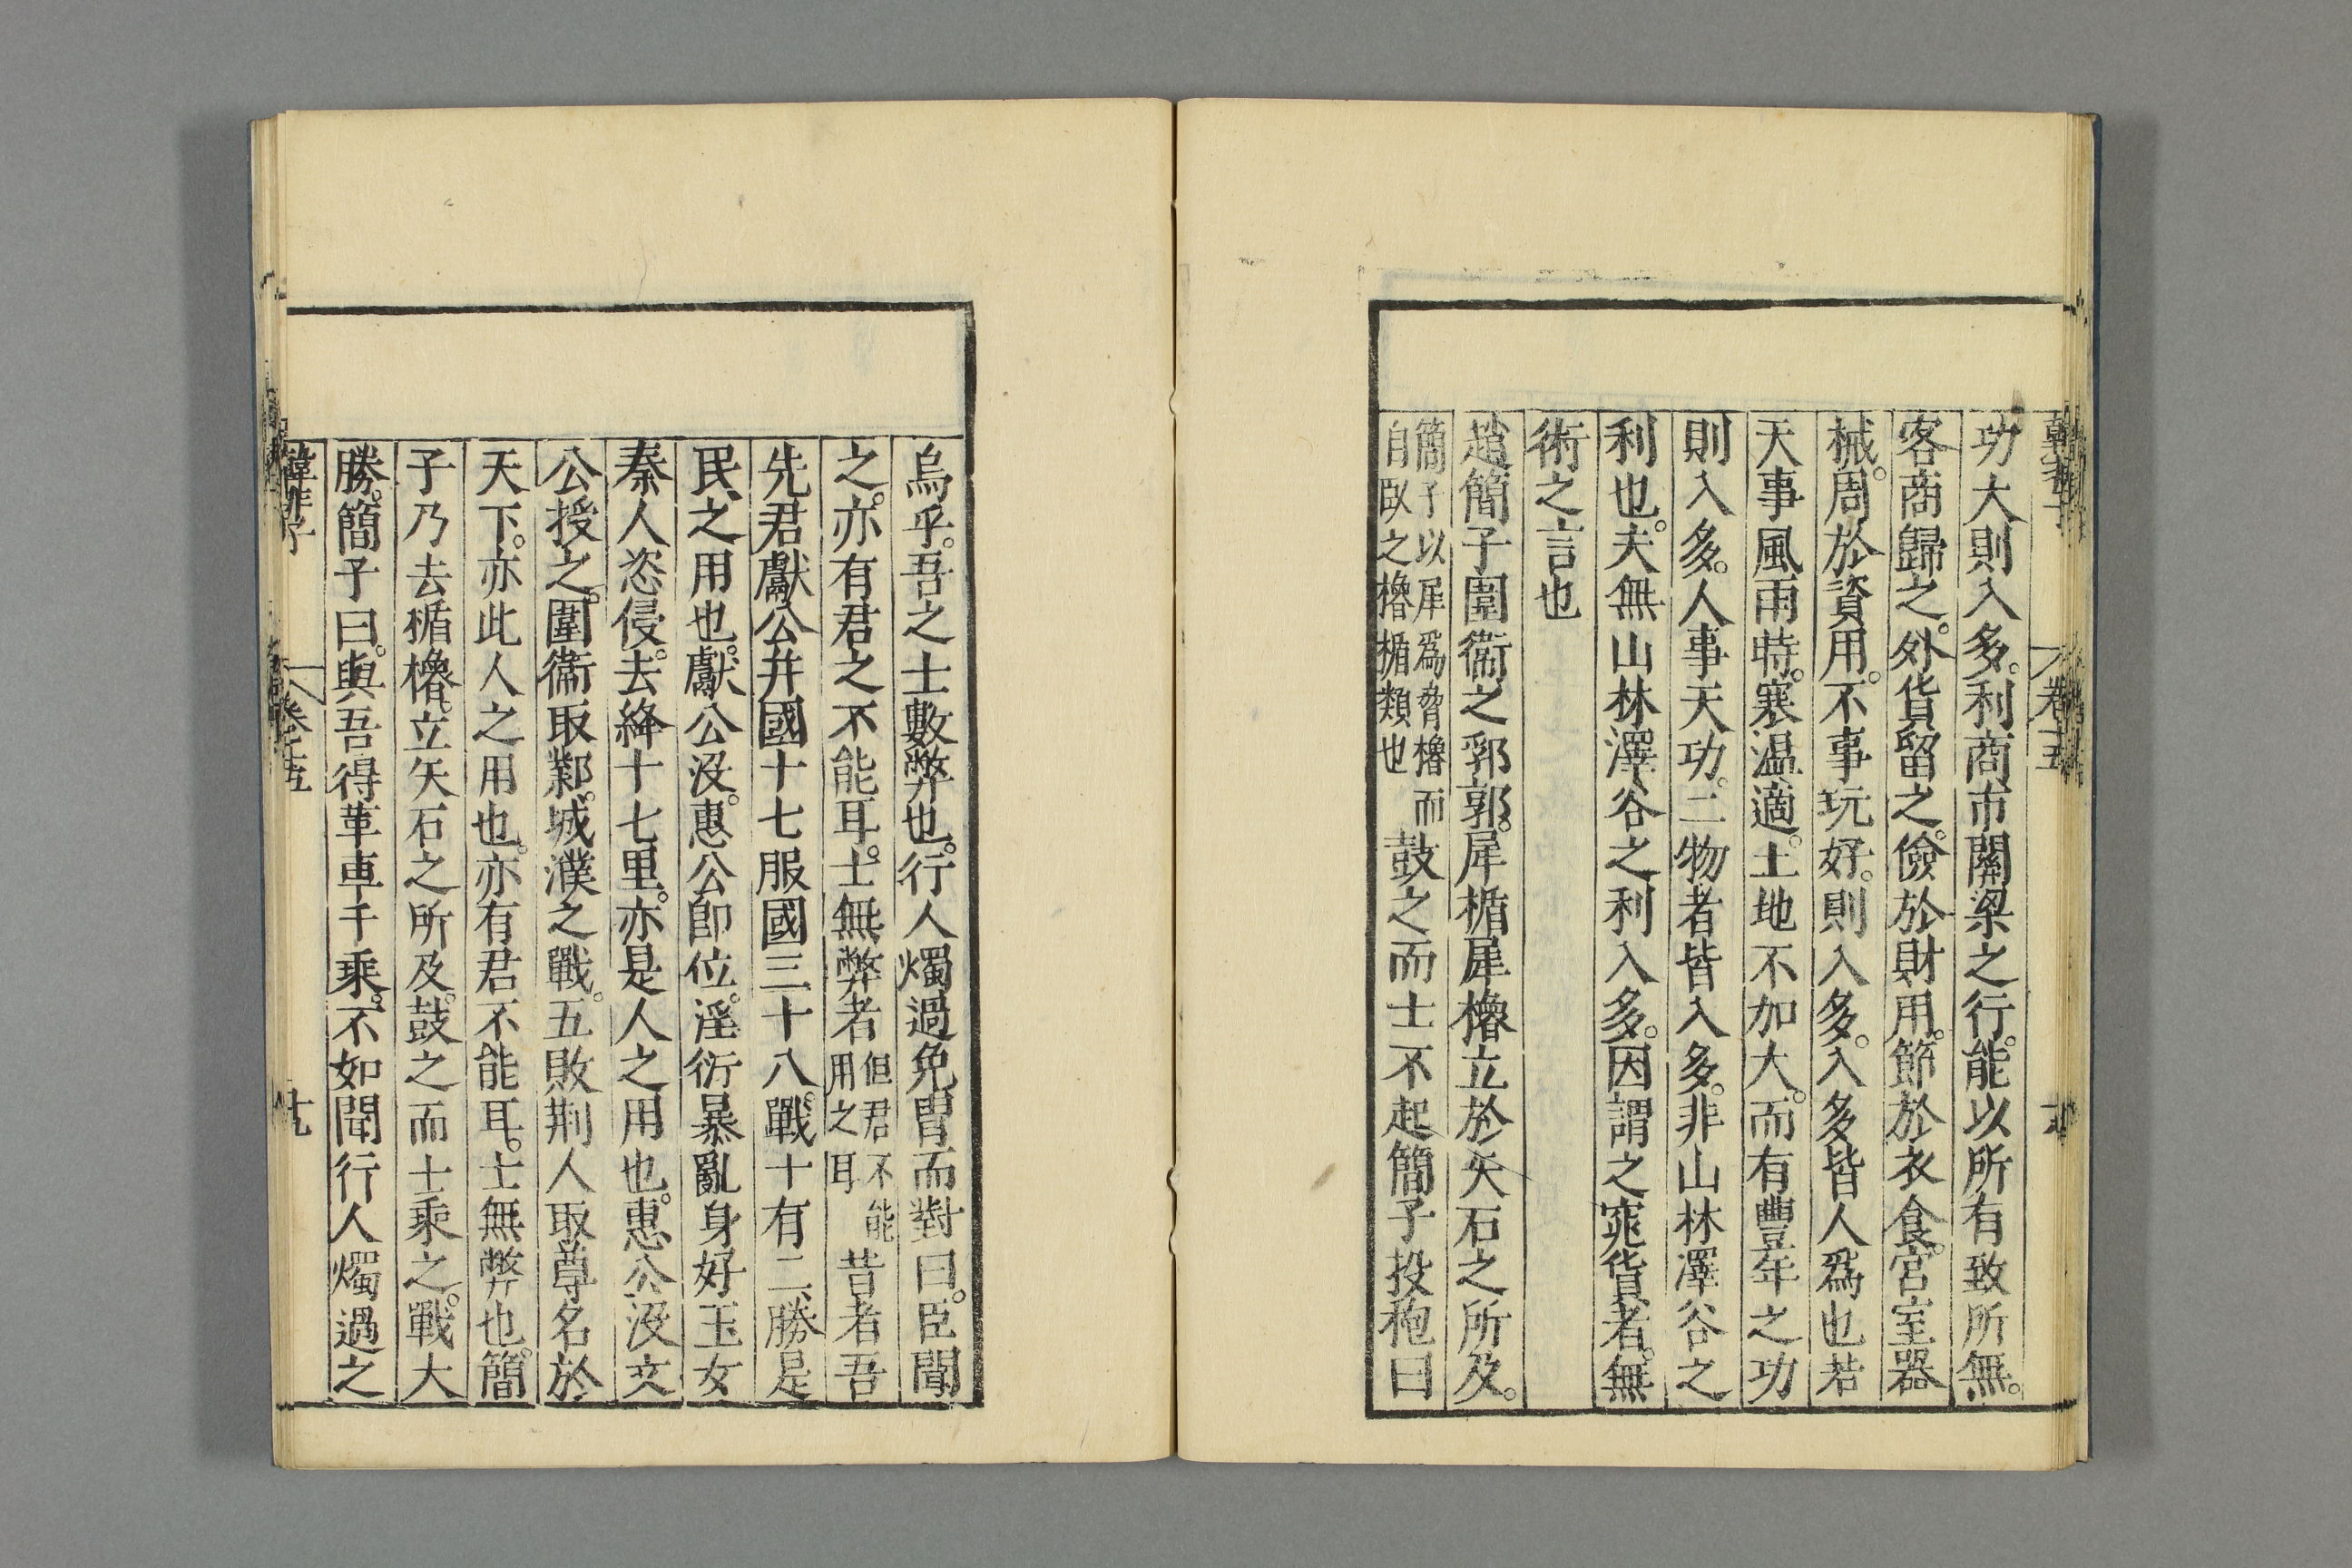 功大則入多。利商市關梁之行。能以所有致所無。
客商歸之。外貨留之。儉於財用。節於衣食。宮室器
械。周於資用。不事玩好。則入多。入多皆人爲也若
天事風雨時。寒温適。土地不加大。而有豐年之功
則入多。人事天功。二物者皆入多。非山林澤谷之
利也。夫無山林澤谷之利入多。因謂之窕貨者。無
術之言也
趙簡子圍衞之郛郭。犀楯犀櫓立於矢石之所及。
簡子以犀爲脅櫓而
自臥之櫓楯類也
鼓之而士不起簡子投枹曰
烏乎。吾之士數弊也。行人燭過免冑而對曰。臣聞
之。亦有君之不能耳。士無弊者
但君不能
用之耳
昔者吾
先君獻公并國十七服國三十八。戰十有二勝是
民之用也。獻公沒。惠公卽位。淫衍暴亂身好玉女
秦人恣侵。去絳十七里。亦是人之用也。惠公沒文
公授之。圍衞取鄴。城濮之戰。五敗荆人取尊名於
天下。亦此人之用也。亦有君不能耳。士無弊也。簡
子乃去楯櫓。立矢石之所及。鼓之而士乘之。戰大
勝。簡子曰。與吾得革車千乘。不如聞行人燭過之
韓非子
卷十五
十九